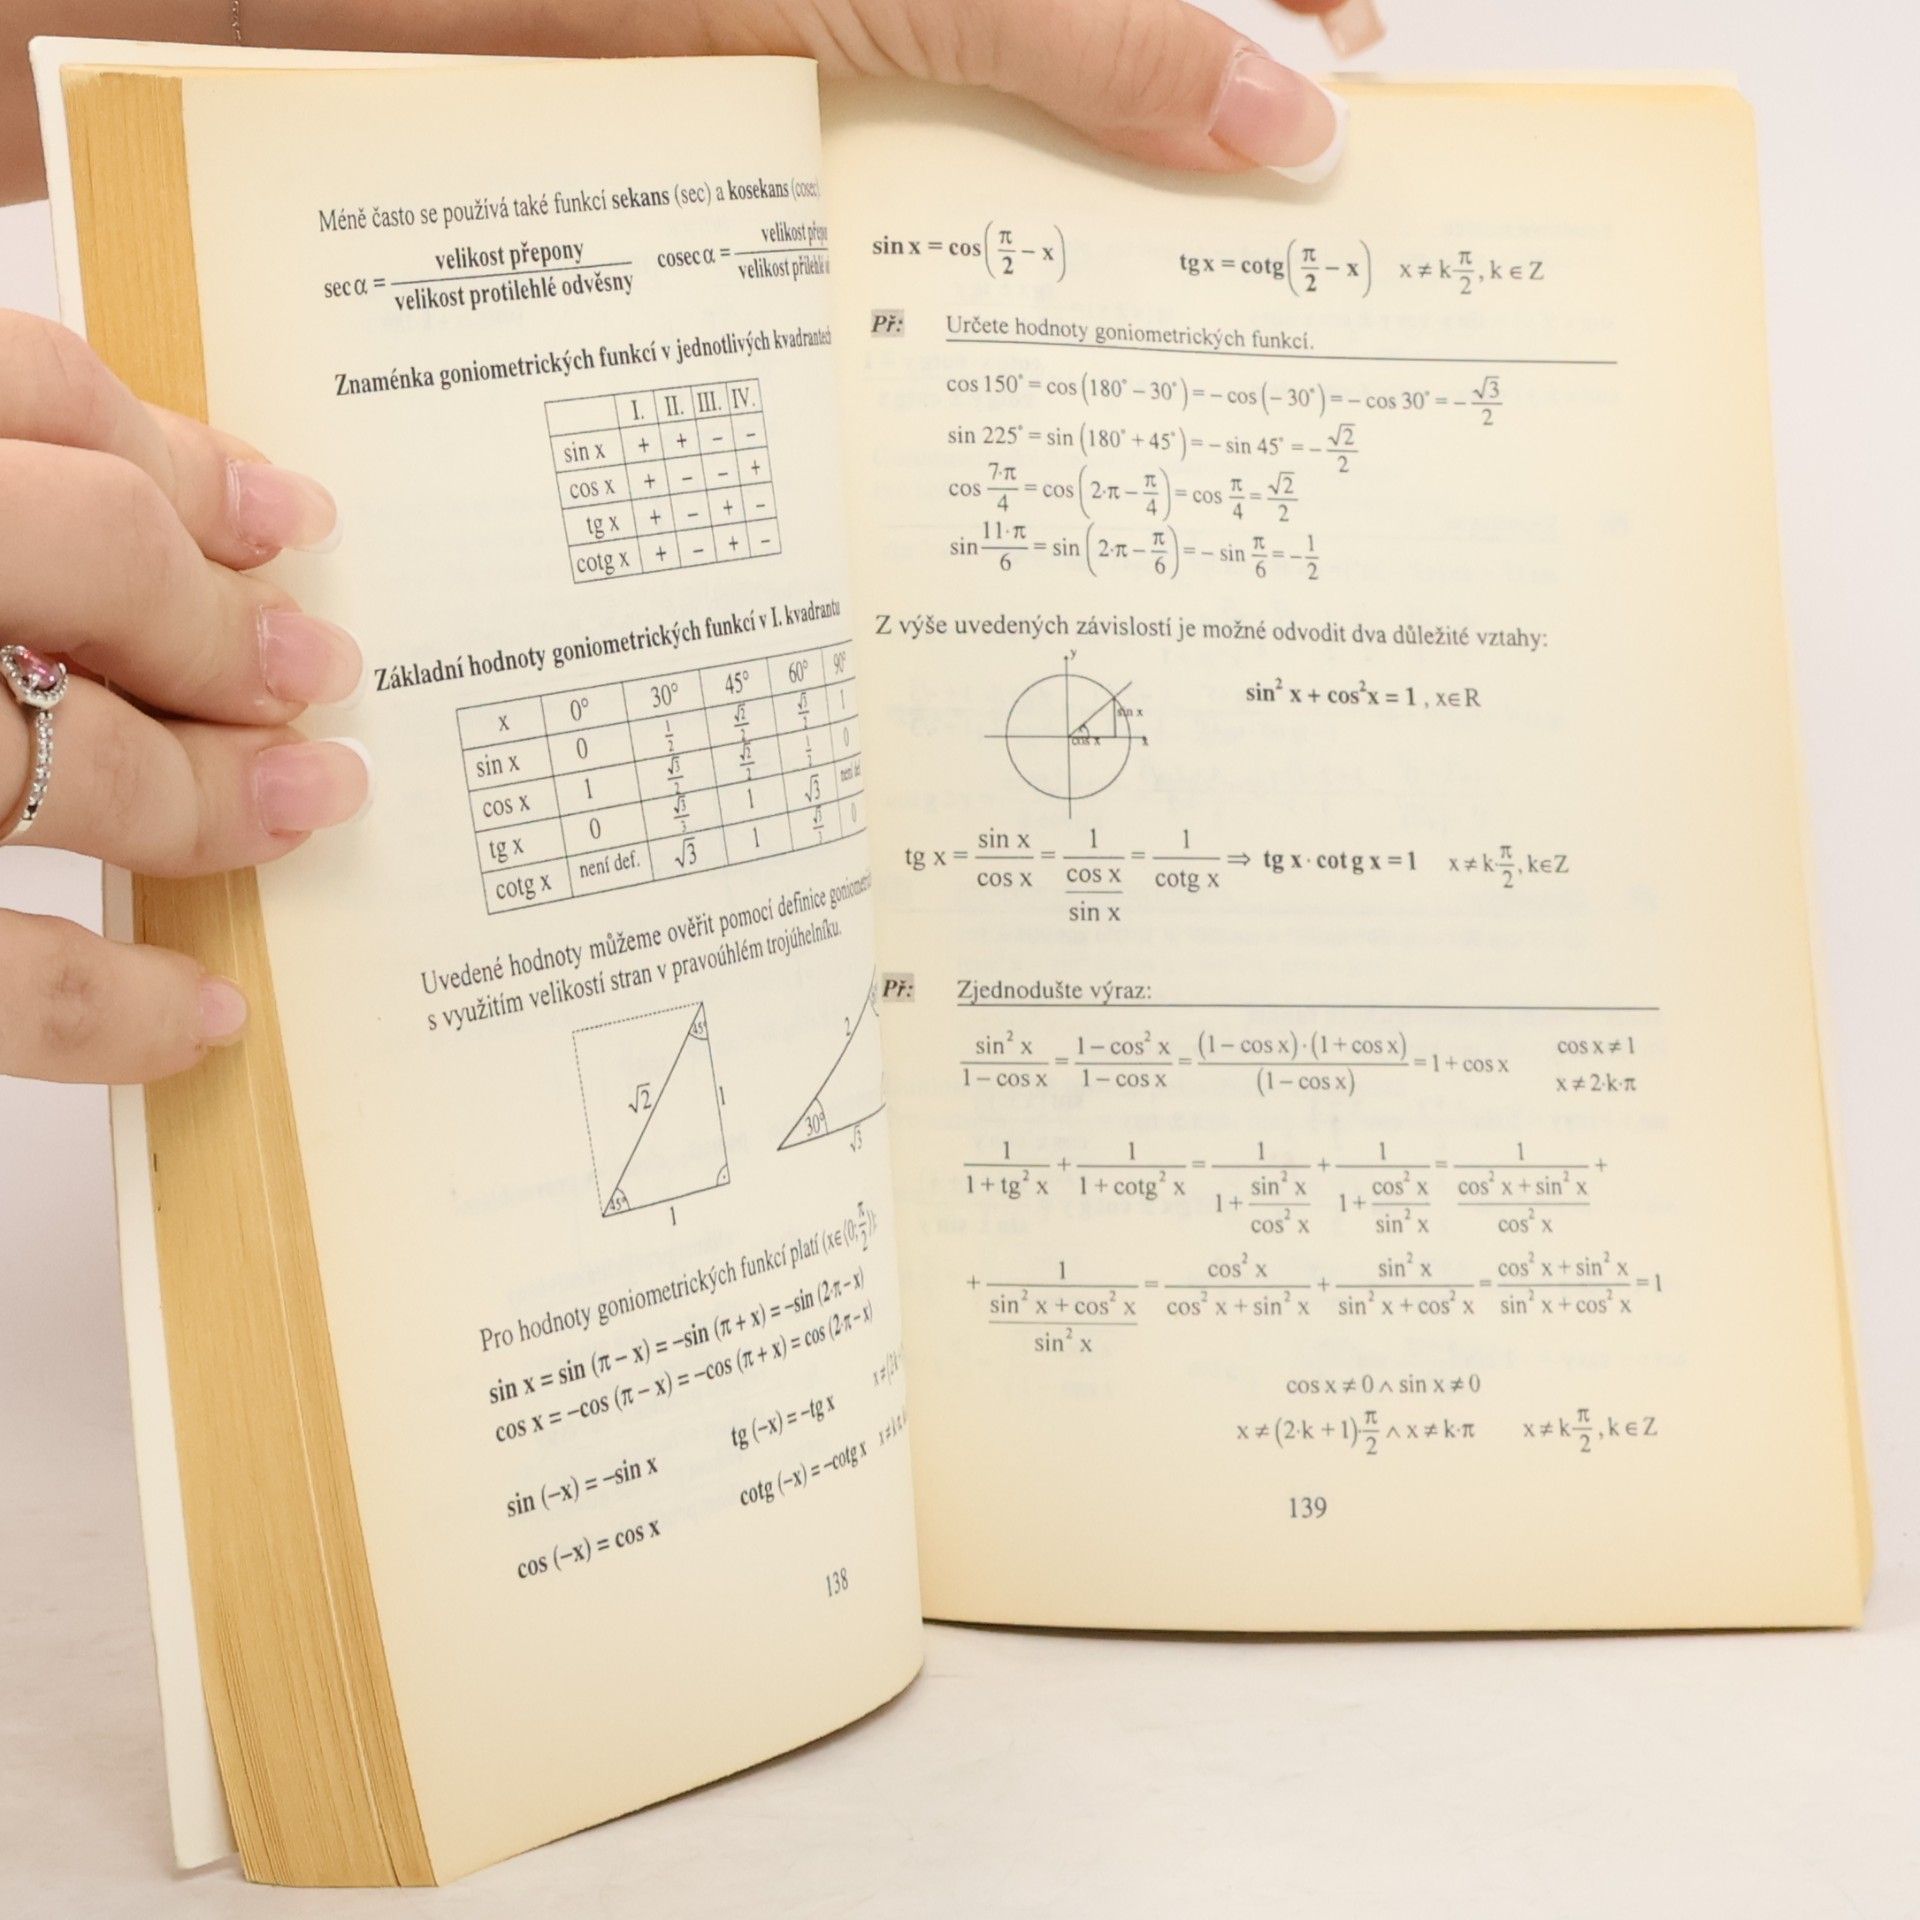 Méně často se používá také funkcí sekans (sec) a kosekans (cosec)
sec α = velikost přepony / velikost protilehlé odvěsny    cosec α = velikost / velikost přilehlé
Znaménka goniometrických funkcí v jednotlivých kvadrantech
I. II. III. IV.
sin x + + – –
cos x + – – +
tg x + – + –
cotg x + – + –
Základní hodnoty goniometrických funkcí v I. kvadrantu
x 0° 30° 45° 60° 90°
sin x 0 1/2 √2/2 √3/2 1
cos x 1 √3/2 √2/2 1/2 0
tg x 0 √3/3 1 √3 není def
cotg x není def. √3 1 √3/3 0
Uvedené hodnoty můžeme ověřit pomocí definice
s využitím velikostí stran v pravoúhlém trojúhelníku.
45° √2 1 45° 1
2 30° √3
Pro hodnoty goniometrických funkcí platí (x∈⟨0; π/2⟩):
sin x = sin (π – x) = –sin (π + x) = –sin (2·π – x)
cos x = –cos (π – x) = –cos (π + x) = cos (2·π – x)
sin (–x) = –sin x    tg (–x) = –tg x
cos (–x) = cos x    cotg (–x) = –cotg x
138
sin x = cos(π/2 – x)    tg x = cotg(π/2 – x)    x ≠ k·π/2, k ∈ Z
Př: Určete hodnoty goniometrických funkcí.
cos 150° = cos (180° – 30°) = – cos (– 30°) = – cos 30° = – √3/2
sin 225° = sin (180° + 45°) = – sin 45° = – √2/2
cos 7·π/4 = cos (2·π – π/4) = cos π/4 = √2/2
sin 11·π/6 = sin (2·π – π/6) = – sin π/6 = – 1/2
Z výše uvedených závislostí je možné odvodit dva důležité vztahy:
y sin x cos x x
sin² x + cos²x = 1 , x∈R
tg x = sin x/cos x = 1/(cos x/sin x) = 1/cotg x ⇒ tg x · cotg x = 1    x ≠ k·π/2, k∈Z
Př: Zjednodušte výraz:
sin² x/(1 – cos x) = (1 – cos² x)/(1 – cos x) = (1 – cos x)·(1 + cos x)/(1 – cos x) = 1 + cos x    cos x ≠ 1
x ≠ 2·k·π
1/(1 + tg² x) + 1/(1 + cotg² x) = 1/(1 + sin² x/cos² x) + 1/(1 + cos² x/sin² x) = 1/((cos² x + sin² x)/cos² x) +
+ 1/((sin² x + cos² x)/sin² x) = cos² x/(cos² x + sin² x) + sin² x/(sin² x + cos² x) = (cos² x + sin² x)/(sin² x + cos² x) = 1
cos x ≠ 0 ∧ sin x ≠ 0
x ≠ (2·k + 1)·π/2 ∧ x ≠ k·π    x ≠ k·π/2, k ∈ Z
139